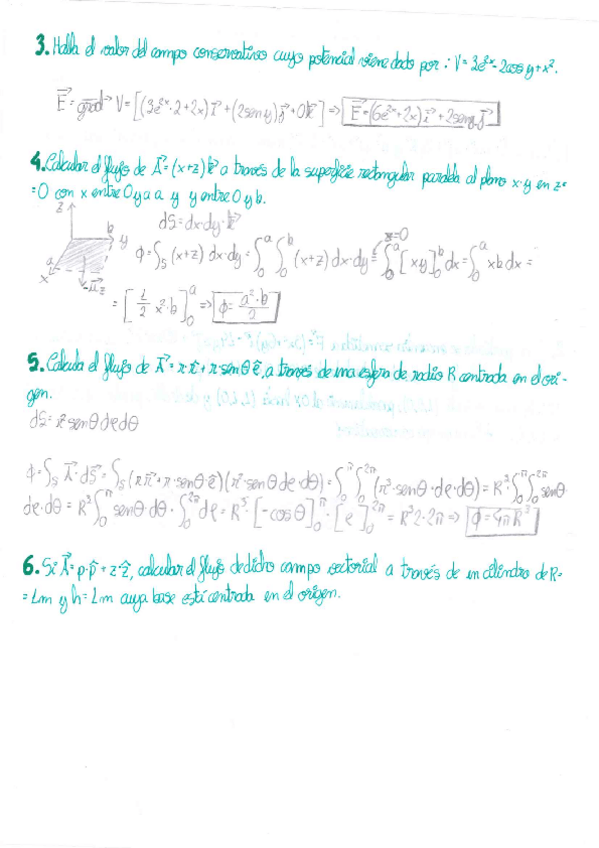 3. Halla el valor del campo conservativo cuyo potencial viene dado por: V = 3e^{2x} - 2cos y + x².
E⃗ = grad⃗ V = [(3e^{2x}·2 + 2x) i⃗ + (2sen y) j⃗ + 0k⃗] => E⃗ = (6e^{2x} + 2x) i⃗ + 2sen y j⃗
4. Calcular el flujo de A⃗ = (x+z) k⃗ a través de la superficie rectangular paralela al plano x-y en z=
=0 con x entre 0 y a a y y entre 0 y b.
z
dS⃗ = dx·dy·k⃗
b y
a
x
-u⃗z
z=0
ϕ = ∫_S (x+z) dx·dy = ∫_0^a ∫_0^b (x+z) dx·dy = ∫_0^a [xy]_0^b dx = ∫_0^a xb dx =
= [1/2 x²·b]_0^a => ϕ = a²·b/2
5. Calcula el flujo de A⃗ = r·r̂ + r·senθ ê, a través de una esfera de radio R centrada en el ori-
gen.
dS⃗ = r² senθ de dθ
ϕ = ∫_S A⃗·dS⃗ = ∫_S (r r⃗ + r·senθ·ê)(r²·senθ de·dθ) = ∫_0^π ∫_0^{2π} (r³·senθ·de·dθ) = R³ ∫_0^π ∫_0^{2π} senθ·
de·dθ = R³ ∫_0^π senθ·dθ · ∫_0^{2π} de = R³·[-cosθ]_0^π · [e]_0^{2π} = R³ 2·2π => ϕ = 4πR³
6. Si A⃗ = ρ·ρ̂ + z·ẑ, calcular el flujo de dicho campo vectorial a través de un cilindro de R=
= 1m y h = 1m cuya base está centrada en el origen.